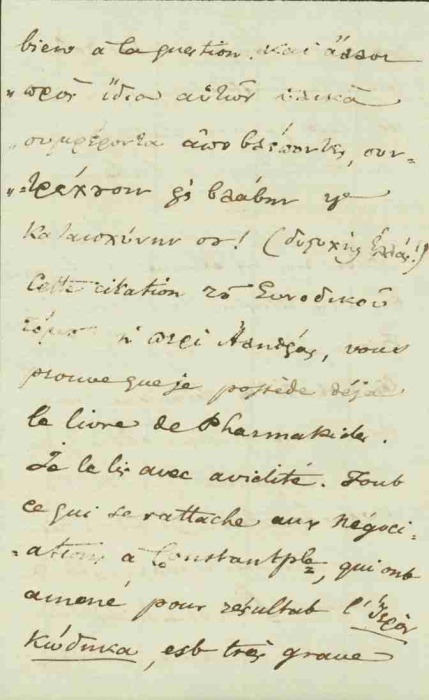 bien à la question. καὶ ἄλλοι
" πρὸς ἴδια αὐτῶν ὑλικὰ
" συμφέροντα ἀποβλέποντες, συν-
" -τρέχουν εἰς βλάβην κ
καταισχύνην σου! (δυστυχὴς Ἑλλάς!)
Cette citation τοῦ Συνοδικοῦ
τόμου ἢ περὶ Ἀληθείας, vous
prouve que je possède déjà
le livre de Pharmakides.
Je le lis avec avidité. Tout
ce qui se rattache aux négoci-
-ations à Constantple, qui ont
amené pour résultat l'Ἱερὸν
Κώδηκα, est très grave